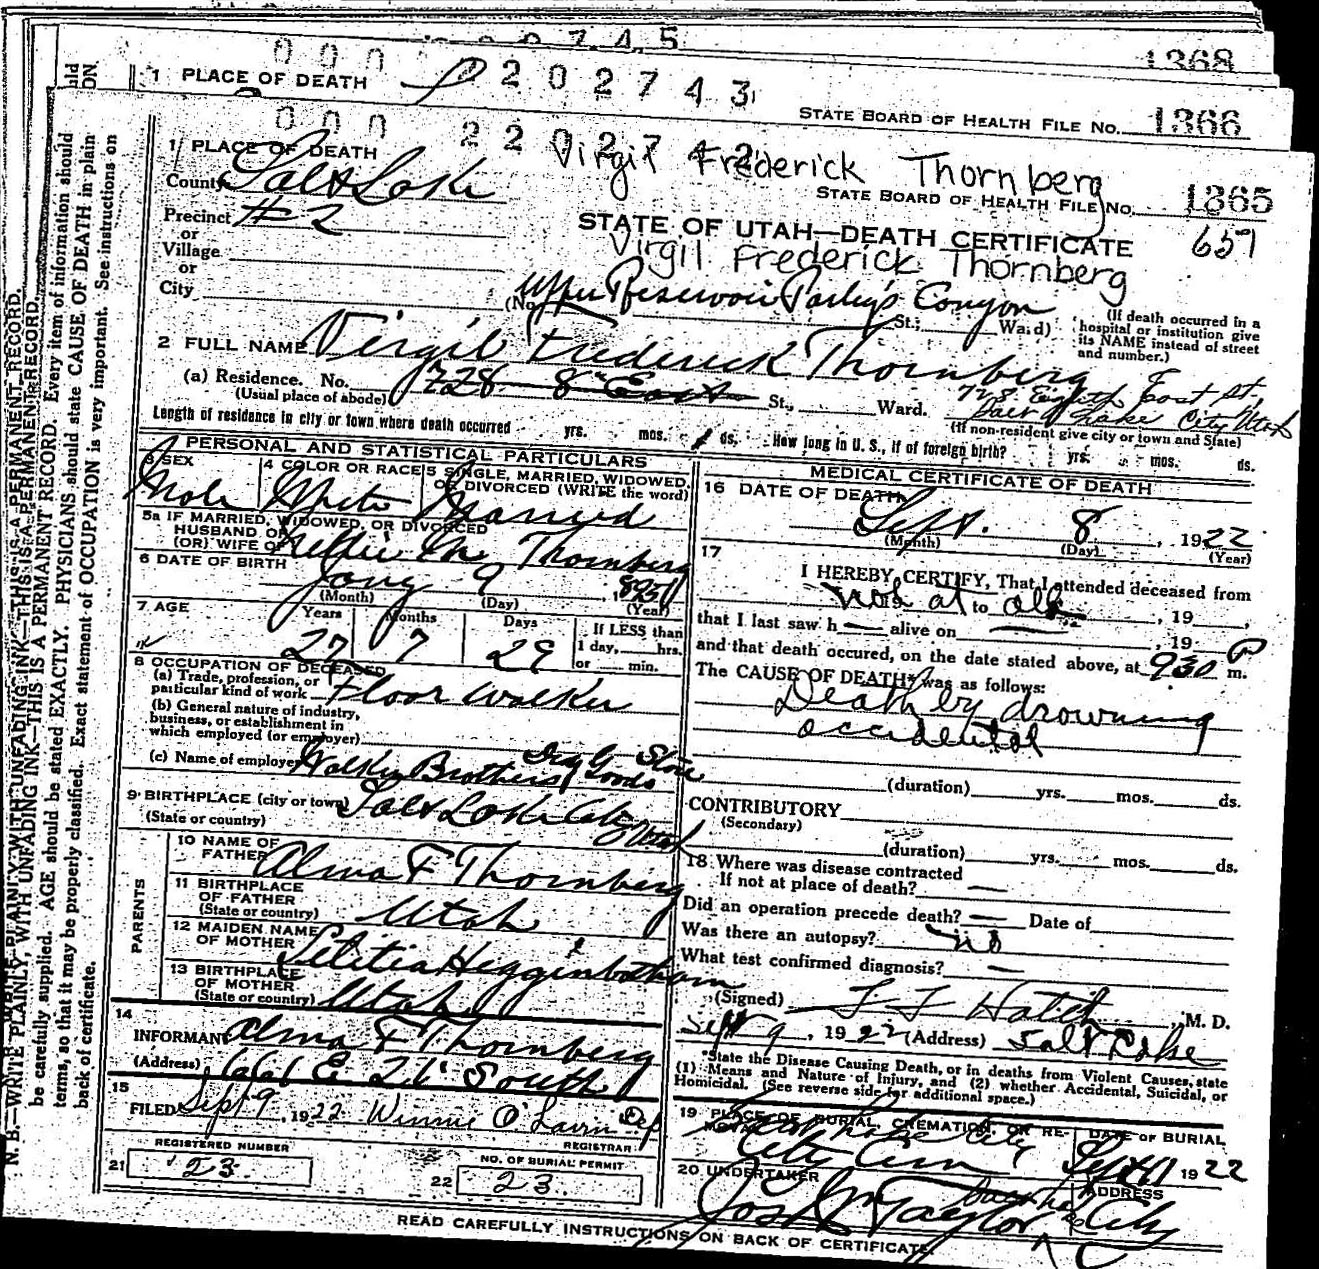 000 202745
1368
1 PLACE OF DEATH
202743
STATE BOARD OF HEALTH FILE No. 1366
000 2202742
1 PLACE OF DEATH
Virgil Frederick Thornberg
County Salt Lake
STATE BOARD OF HEALTH FILE No. 1365
Precinct #2
STATE OF UTAH—DEATH CERTIFICATE 657
or
Village
Virgil Frederick Thornberg
or
City
(No. Upper Reservoir Parley's Canyon St.; Ward)
(If death occurred in a hospital or institution give its NAME instead of street and number.)
2 FULL NAME Virgil Frederick Thornberg
(a) Residence. No. 728 8th East St., Ward.
728 Eighth East St.
Salt Lake City Utah
(Usual place of abode)
(If non-resident give city or town and State)
Length of residence in city or town where death occurred yrs. mos. ds. How long in U. S., if of foreign birth? yrs. mos. ds.
PERSONAL AND STATISTICAL PARTICULARS
3 SEX
Male
4 COLOR OR RACE
White
5 SINGLE, MARRIED, WIDOWED, OR DIVORCED (WRITE the word)
Married
5a IF MARRIED, WIDOWED, OR DIVORCED
HUSBAND OF
(OR) WIFE OF Nettie M. Thornberg
6 DATE OF BIRTH
Jany 9 1895
(Month) (Day) (Year)
7 AGE
Years Months Days
27 7 29
If LESS than
1 day, hrs.
or min.
8 OCCUPATION OF DECEASED
(a) Trade, profession, or
particular kind of work Floor Walker
(b) General nature of industry,
business, or establishment in
which employed (or employer)
(c) Name of employer Walker Brothers Dry Goods Store
9 BIRTHPLACE (city or town) Salt Lake City Utah
(State or country)
PARENTS
10 NAME OF
FATHER Alma F Thornberg
11 BIRTHPLACE
OF FATHER
(State or country) Utah
12 MAIDEN NAME
OF MOTHER Letitia Higginbotham
13 BIRTHPLACE
OF MOTHER
(State or country) Utah
14
INFORMANT Alma F Thornberg
(Address) 661 E. 21 South
15
FILED Sept 9, 1922 Winnie O'Lavin Dep
REGISTRAR
REGISTERED NUMBER
21 23
NO. OF BURIAL PERMIT
22 23
MEDICAL CERTIFICATE OF DEATH
16 DATE OF DEATH
Sept. 8, 1922
(Month) (Day) (Year)
17
I HEREBY CERTIFY, That I attended deceased from
not at to all, 19
that I last saw h— alive on —, 19
and that death occured, on the date stated above, at 930 P m.
The CAUSE OF DEATH* was as follows:
Death by drowning
accidental
(duration) yrs. mos. ds.
CONTRIBUTORY
(Secondary)
(duration) yrs. mos. ds.
18 Where was disease contracted
If not at place of death? —
Did an operation precede death? — Date of
Was there an autopsy? no
What test confirmed diagnosis? —
(Signed) Hatch, M. D.
Sept 9, 1922 (Address) Salt Lake
*State the Disease Causing Death, or in deaths from Violent Causes, state
(1) Means and Nature of Injury, and (2) whether Accidental, Suicidal, or
Homicidal. (See reverse side for additional space.)
19 PLACE OF BURIAL, CREMATION, OR REMOVAL
Salt Lake City
City Cem
DATE OF BURIAL
Sept 11 1922
20 UNDERTAKER
Jos Taylor
ADDRESS
Salt Lake City
READ CAREFULLY INSTRUCTIONS ON BACK OF CERTIFICATE.
N. B.—WRITE PLAINLY, WITH UNFADING INK—THIS IS A PERMANENT RECORD. Every item of information should
be carefully supplied. AGE should be stated EXACTLY. PHYSICIANS should state CAUSE OF DEATH in plain
terms, so that it may be properly classified. Exact statement of OCCUPATION is very important. See instructions on
back of certificate.